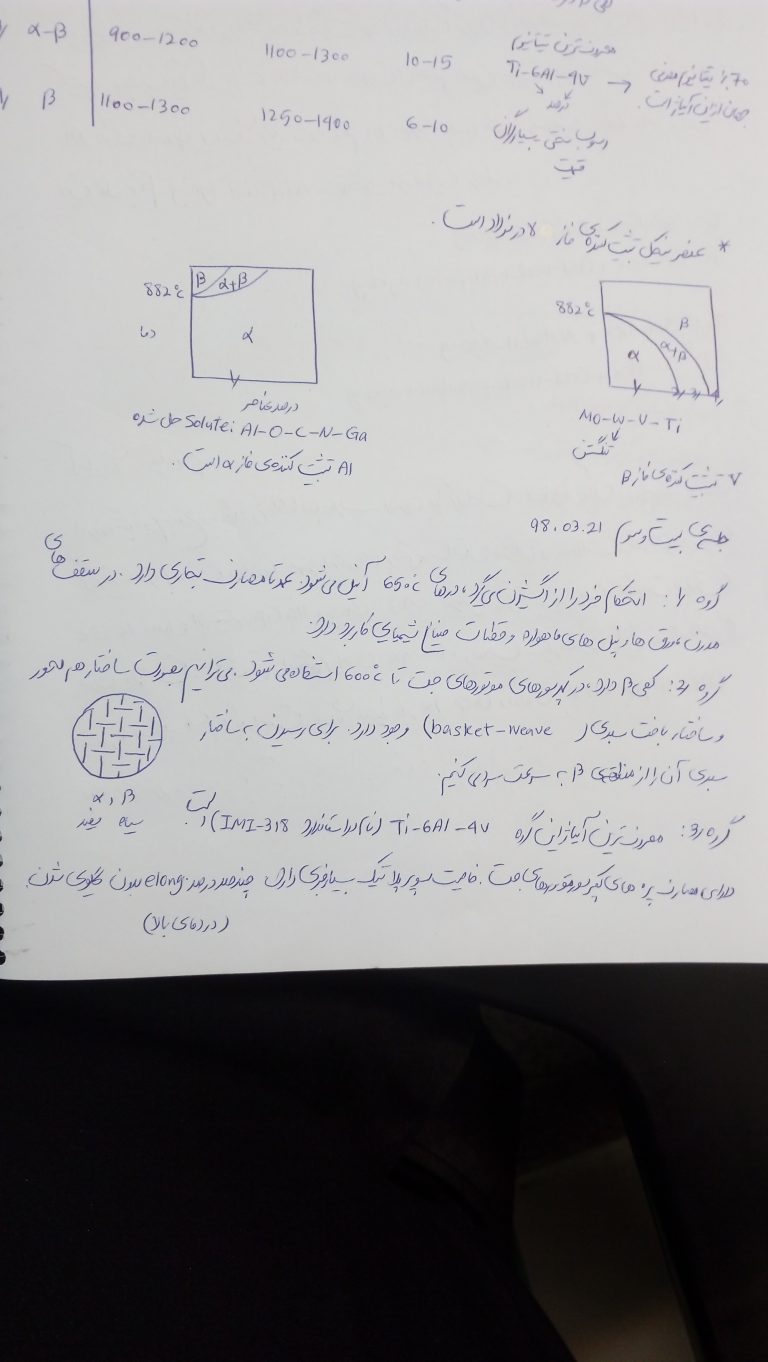 α-β 900-1200 1100-1300 10-15
معروفترین تیتانیوم
Ti-6Al-4V → 70٪ تیتانیوم مصرفی
درصد
جهان از این آلیاژ است.
β 1100-1300 1250-1400 6-10
بسیار گران
قیمت
* عنصر نیکل تثبیت کننده‌ی فاز γ در فولاد است.
882°c β α+β α
دما
درصد عناصر
Solute: Al-O-C-N-Ga حل شده
Al تثبیت کننده‌ی فاز α است.
882°c β α+β α
1 2 3 4
Mo-W-V-Ti
تنگستن
V تثبیت کننده‌ی فاز β
جلسه‌ی بیست و سوم 98.03.21
گروه 1: استحکام خود را از اکسیژن می‌گیرد، در دمای 650°c آنیل می‌شود. عمدتا مصارف تجاری دارد. در سقف‌های
مدرن، ورق‌ها و پنل‌های ماهواره و قطعات صنایع شیمیایی کاربرد دارد.
گروه 2: کمی β دارد، در کمپرسورهای موتورهای جت تا 600°c استفاده می‌شود. می‌توانیم بصورت ساختار هم محور
و ساختار بافت سبدی (basket-weave) وجود دارد. برای رسیدن به ساختار
سبدی آن را از منطقه‌ی β به سرعت سرد می‌کنیم.
α , β
سیاه سفید
گروه 3: معروف‌ترین آلیاژ این گروه Ti-6Al-4V (نام استاندارد IMI-318) است
دارای مصارف پره‌های کمپرسور موتورهای جت. خاصیت سوپر پلاستیک بسیار خوبی دارد، چند صد درصد elong. بدون گلویی شدن
(در دمای بالا)